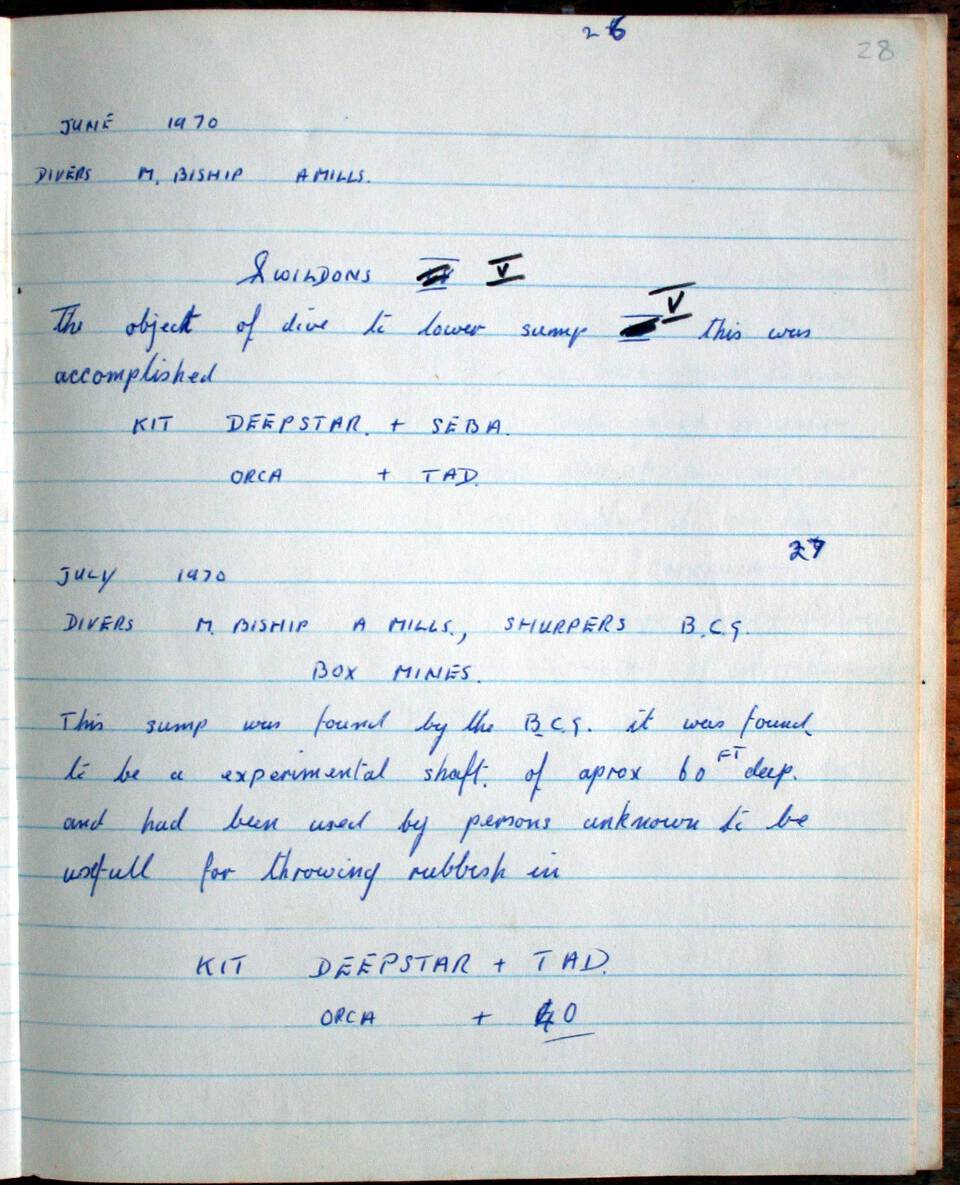 26
28
JUNE 1970
DIVERS M. BISHIP A MILLS.
SWILDONS V
The object of dive to lower sump V this was
accomplished
KIT DEEPSTAR. + SEBA.
ORCA + TAD.
27
JULY 1970
DIVERS M. BISHIP A MILLS., SHURPERS B.C.G.
BOX MINES.
This sump was found by the B.C.G. it was found
to be a experimental shaft. of aprox 60 FT deep.
and had been used by persons unknown to be
usefull for throwing rubbish in
KIT DEEPSTAR + TAD.
ORCA + 40